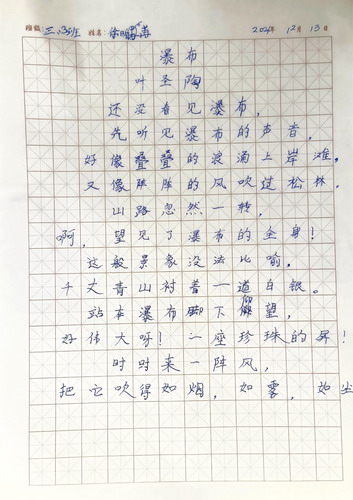 班级：三.3班 姓名： 2024年12月13日
瀑布
叶圣陶
还没看见瀑布，
先听见瀑布的声音，
好像叠叠的浪涌上岸滩，
又像阵阵的风吹过松林。
山路忽然一转，
啊，望见了瀑布的全身！
这般景象没法比喻，
千丈青山衬着一道白银。
站本瀑布脚下仰望，
好伟大呀！一座珍珠的屏！
时时来一阵风，
把它吹得如烟，如雾，如尘